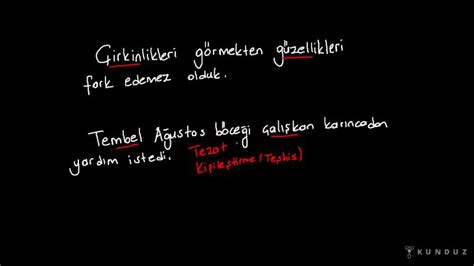 Çirkinlikleri görmekten güzellikleri
fark edemez olduk.
Tembel Ağustos böceği çalışkan karıncadan
yardım istedi. Tezat
Kişileştirme (Teşhis)
KUNDUZ